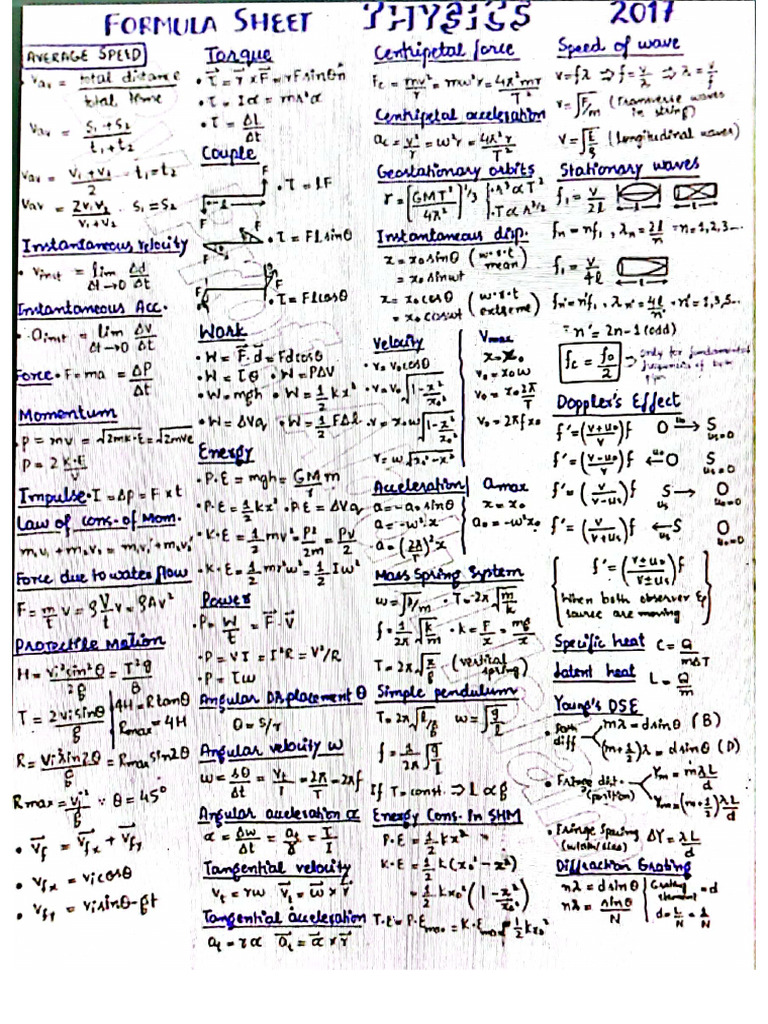 FORMULA SHEET PHYSICS 2017
AVERAGE SPEED
• Vav = total distance / total time
Vav = S₁+S₂ / t₁+t₂
Vav = V₁+V₂ / 2 · t₁=t₂
Vav = 2V₁V₂ / V₁+V₂ · S₁=S₂
Instantaneous velocity
• Vinst = lim Δt→0 Δd/Δt
Instantaneous Acc.
• ainst = lim Δt→0 ΔV/Δt
Force • F=ma = ΔP/Δt
Momentum
• P = mv = √2mK·E = √2mVe
P = 2 K·E / V
Impulse • I = ΔP = F×t
Law of cons. of Mom.
m₁v₁ + m₂v₂ = m₁v₁' + m₂v₂'
Force due to water flow
F = m/t v = ρ V/t v = ρAv²
Projectile Motion
H = Vi²sin²θ / 2g = T²g / 8
T = 2visinθ / g
4H = R tanθ
Rmax = 4H
R = Vi²sin2θ / g = Rmax sin2θ
Rmax = vi²/g ∵ θ = 45°
• Vf = Vfx + Vfy
• Vfx = vicosθ
• Vfy = visinθ - gt
Torque
• τ = r × F = rFsinθn
• τ = Iα = mr²α
• τ = ΔL/Δt
Couple
F
F
l
• τ = lF
F
F
• τ = Flsinθ
F
F
• τ = Flcosθ
Work
• W = F·d = Fdcosθ
• W = τθ • W = PΔV
• W = mgh • W = 1/2 kx²
• W = ΔVq • W = 1/2 FΔl
Energy
• P.E = mgh = GMm/r
• P.E = 1/2 kx² • P.E = ΔVq
• K.E = 1/2 mv² = P²/2m = Pv/2
• K.E = 1/2 mr²ω² = 1/2 Iω²
Power
• P = W/t = F·V
• P = VI = I²R = V²/R
• P = τω
Angular Displacement θ
θ = S/r
Angular velocity ω
ω = Δθ/Δt = Vt/r = 2π/T = 2πf
Angular acceleration α
α = Δω/Δt = at/r = τ/I
Tangential velocity
Vt = rω Vt = ω × r
Tangential acceleration
at = rα at = α × r
Centripetal force
Fc = mv²/r = mω²r = 4π²mr/T²
Centripetal acceleration
ac = v²/r = ω²r = 4π²r/T²
Geostationary orbits
r = [GMT²/4π²]^1/3
• r³ ∝ T²
• T ∝ r^3/2
Instantaneous disp.
x = x₀sinθ (w.r.t mean)
= x₀sinωt
x = x₀cosθ (w.r.t extreme)
= x₀cosωt
Velocity
• v = v₀cosθ
• v = v₀√1-x²/x₀²
• v = x₀ω√1-x²/x₀²
v = ω√x₀²-x²
Vmax
x = x₀
v₀ = x₀ω
v₀ = x₀ 2π/T
v₀ = 2πfx₀
Acceleration
a = -a₀sinθ
a = -ω²x
a = (2π/T)²x
amax
x = x₀
a₀ = -ω²x₀
Mass Spring System
ω = √k/m • T = 2π√m/k
f = 1/2π √k/m • K = F/x = mg/x
T = 2π√x/g (vertical spring)
Simple pendulum
T = 2π√l/g ω = √g/l
f = 1/2π √g/l
If T = const. ⇒ l ∝ g
Energy Cons. In SHM
P.E = 1/2 kx²
K.E = 1/2 k(x₀²-x²)
= 1/2 kx₀²(1-x²/x₀²)
T.E = P.Emax = K.Emax = 1/2 kx₀²
Speed of wave
v = fλ ⇒ f = v/λ ⇒ λ = v/f
v = √F/m (Transverse waves in string)
v = √E/ρ (Longitudinal waves)
Stationary waves
f₁ = v/2l
l
l
fn = nf₁, λn = 2l/n ∵ n = 1,2,3...
f₁ = v/4l
l
fn' = n'f₁, λn' = 4l/n' ∵ n' = 1,3,5...
∵ n' = 2n-1 (odd)
fc = fo/2
only for fundamental
Doppler's Effect
f' = (v+u₀/v)f O → S us=0
f' = (v-u₀/v)f ← O S us=0
f' = (v/v-us)f S → O u₀=0
f' = (v/v+us)f ← S O u₀=0
f' = (v±u₀/v±us)f
When both observer &
source are moving
Specific heat C = Q/mΔT
latent heat L = Q/m
Young's DSE
• Path diff
mλ = dsinθ (B)
(m+1/2)λ = dsinθ (D)
• Fringe dist. (position)
Ym = mλL/d
Ym = (m+1/2)λL/d
• Fringe Spacing ΔY = λL/d
Diffraction Grating
nλ = dsinθ
nλ = sinθ/N
Grating element = d
d = L/N = 1/N